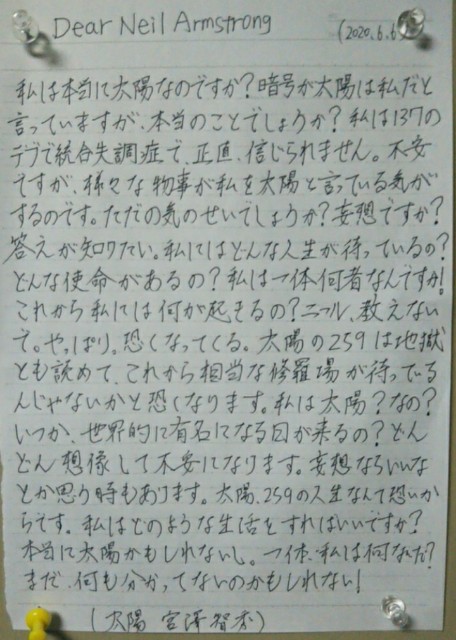 Dear Neil Armstrong
(2020.6.6
私は本当に太陽なのですか?暗号が太陽は私だと
言っていますが、本当のことでしょうか?私は137の
デブで統合失調症で、正直、信じられません。不安
ですが、様々な物事が私を太陽と言っている気が
するのです。ただの気のせいでしょうか?妄想ですか?
答えが知りたい。私にはどんな人生が待っているの?
どんな使命があるの?私は一体何者なんですか!
これから私には何が起きるの?ニール、教えない
で。やっぱり。恐くなってくる。太陽の259は地獄
とも読めて、これから相当な修羅場が待っている
んじゃないかと恐くなります。私は太陽?なの?
いつか、世界的に有名になる日が来るの?どん
どん想像して不安になります。妄想ならいいな
とか思う時もあります。太陽、259の人生なんて恐いか
らです。私はどのような生活をすればいいですか?
本当に太陽かもしれないし。一体、私は何なんだ?
まだ、何も分かってないのかもしれない!
(太陽 宮澤智